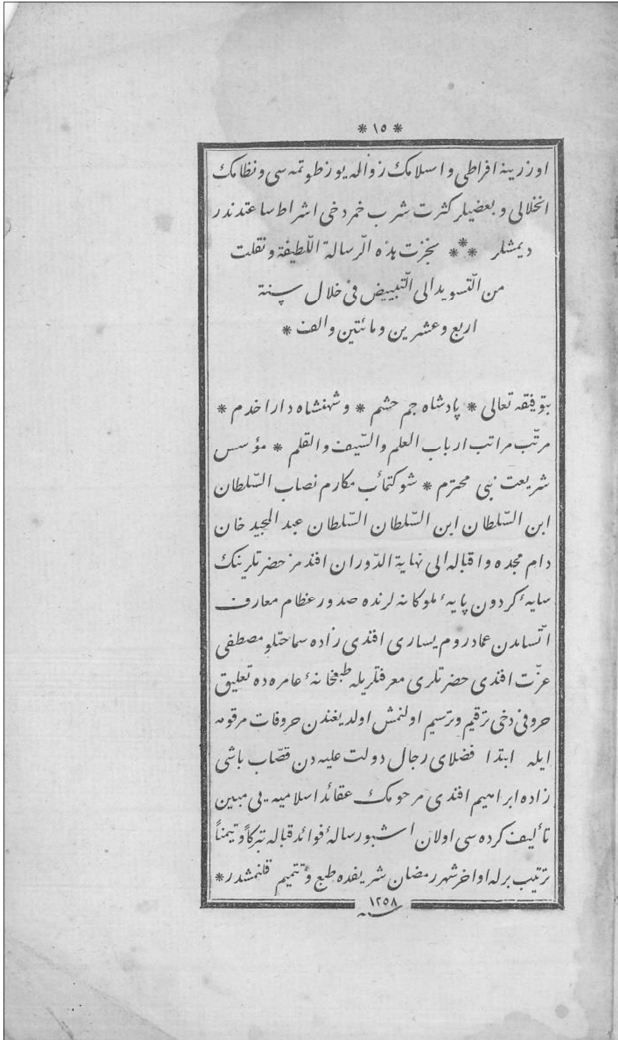 * ١٥ *
اوزرینه افراطی و اسلامك زواله یوز طوتمه سی و نظامك
انحلالی و بعضیلر كثرت شرب خمر دخی اشراط ساعتدندر
دیمشلر *** نجزت هذه الرّسالة اللّطيفة و نقلت
من التّسويد الى التّبييض فى خلال سنة
اربع و عشرين و مائتين و الف *
بتوفيقه تعالى * پادشاه جم حشم * و شهنشاه دارا خدم *
مرتّب مراتب ارباب العلم و السّيف و القلم * مؤسس
شريعت نبی محترم * شوكتمأب مكارم نصاب السّلطان
ابن السّلطان ابن السّلطان السّلطان عبد المجيد خان
دام مجده و اقباله الى نهاية الدّوران افندمز حضرتلرينك
سايهٔ كردون پايهٔ ملوكانه لرنده صدور عظام معارف
اتّسامدن عماد روم يسارى افندى زاده سماحتلو مصطفى
عزّت افندى حضرتلرى معرفتلريله طبعخانهٔ عامره ده تعليق
حروفى دخى ترقيم و ترسيم اولنمش اولديغندن حروفات مرقومه
ايله ابتدا فضلاى رجال دولت عليه دن قصّاب باشى
زاده ابراهيم افندى مرحومك عقائد اسلاميه يى مبين
تأليف كرده سى اولان اشبو رسالهٔ فوائد قباله تبرّكاً و تيمّناً
ترتيب برله اواخر شهر رمضان شريفده طبع و تتميم قلنمشدر *
سنه ١٢٥٨